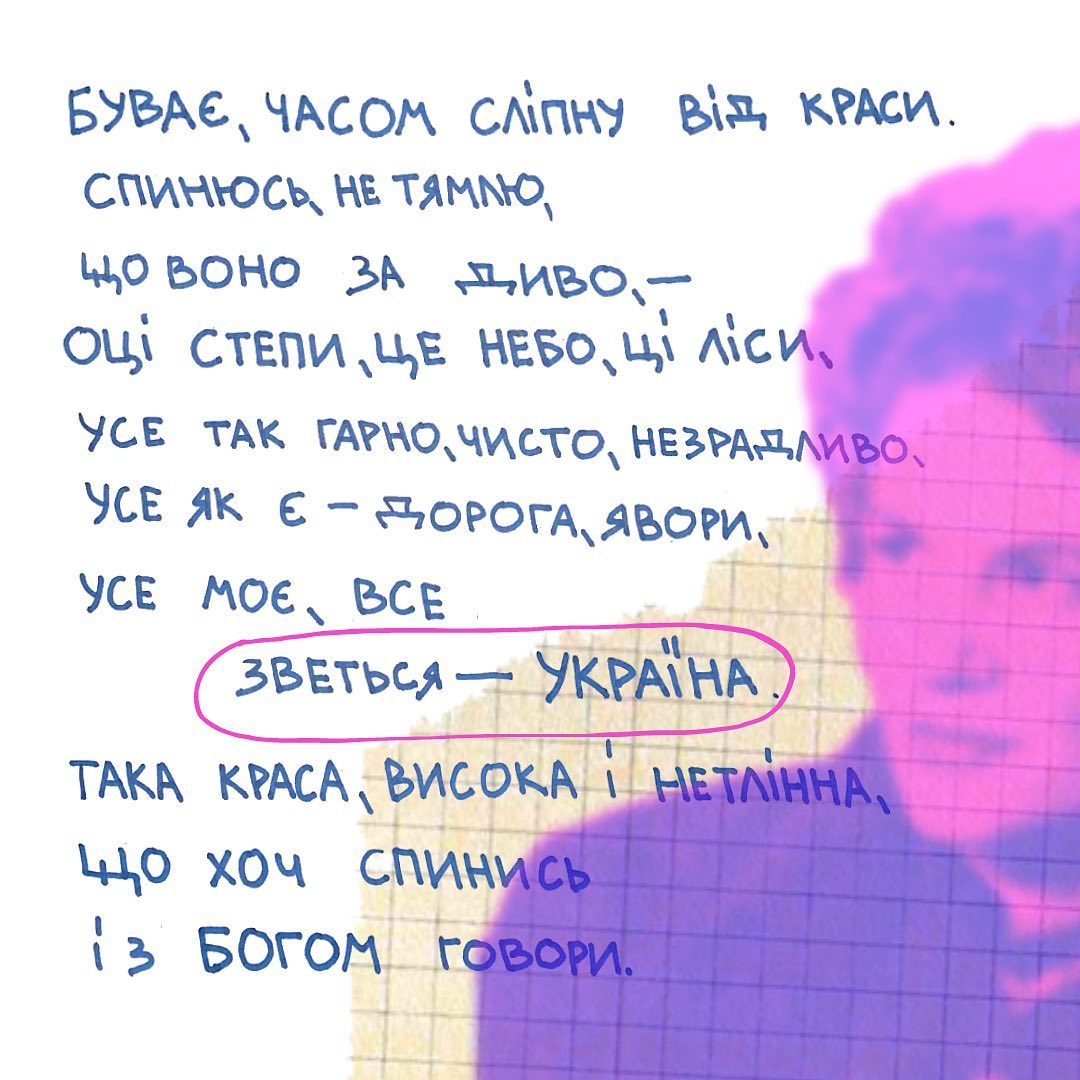 БУВАЄ, ЧАСОМ СЛІПНУ ВІД КРАСИ.
СПИНЮСЬ, НЕ ТЯМЛЮ,
ЩО ВОНО ЗА ДИВО, —
ОЦІ СТЕПИ, ЦЕ НЕБО, ЦІ ЛІСИ,
УСЕ ТАК ГАРНО, ЧИСТО, НЕЗРАДЛИВО,
УСЕ ЯК Є – ДОРОГА, ЯВОРИ,
УСЕ МОЄ, ВСЕ
ЗВЕТЬСЯ — УКРАЇНА.
ТАКА КРАСА, ВИСОКА І НЕТЛІННА,
ЩО ХОЧ СПИНИСЬ
І З БОГОМ ГОВОРИ.